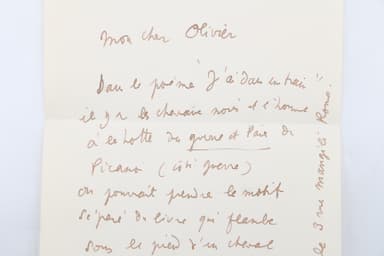 mon cher Olivier
Dans le poème "J'ai dans
il y a les chevaux noirs et l'homme
à la hotte du guerre et Paix de
Picasso (côté guerre)
on pourrait prendre le motif
séparé du livre qui flambe
sous les pied d'un cheval
le 3 rue mangili Rome.